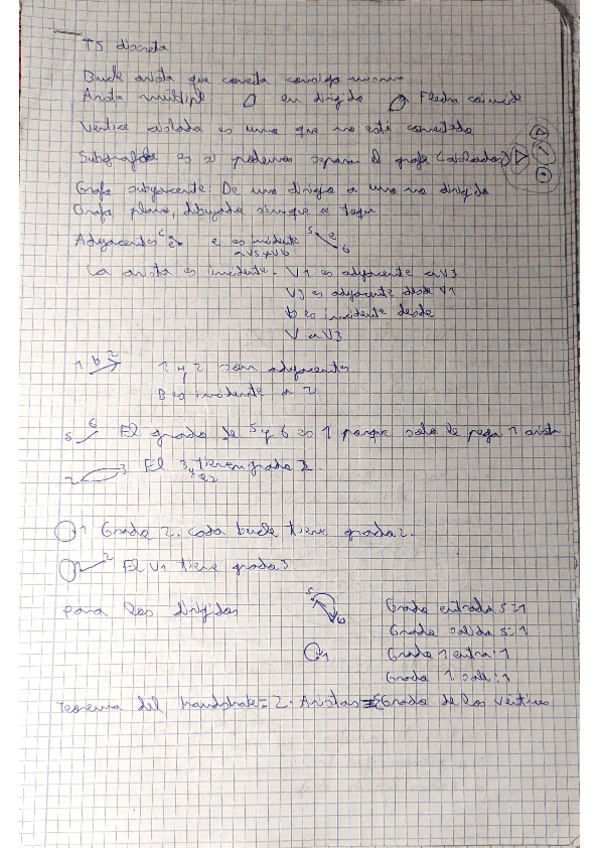 T5 discreta
Bucle arista que conecta consigo mismo
Arista múltiple en dirigido Flecha coincide
Vértice aislado es uno que no está conectado
Subgrafo es si podemos separar el grafo (aislados)
Grafo subyacente: De uno dirigido a uno no dirigido
Grafo plano, dibujado sin que se toquen
Adyacentes 6 5 e es incidente 5 e 6
a V5 y V6
La arista es incidente. V1 es adyacente a V3
V3 es adyacente desde V1
b es incidente desde
V a V3
1 b 2 1 y 2 son adyacentes
B es incidente a 2
5 6 El grado de 5 y 6 es 1 porque solo le pega 1 arista
2 3 El 3 y el 2 tienen grado 2.
1 Grado 2. cada bucle tiene grado 2.
1 2 El V1 tiene grado 3
Para los dirigidos 5 6 Grado entrada 5=1
Grado salida 5=1
1 Grado 1 entra: 1
Grado 1 sale: 1
Teorema del handshake = 2 · Aristas = Σ Grado de los vértices